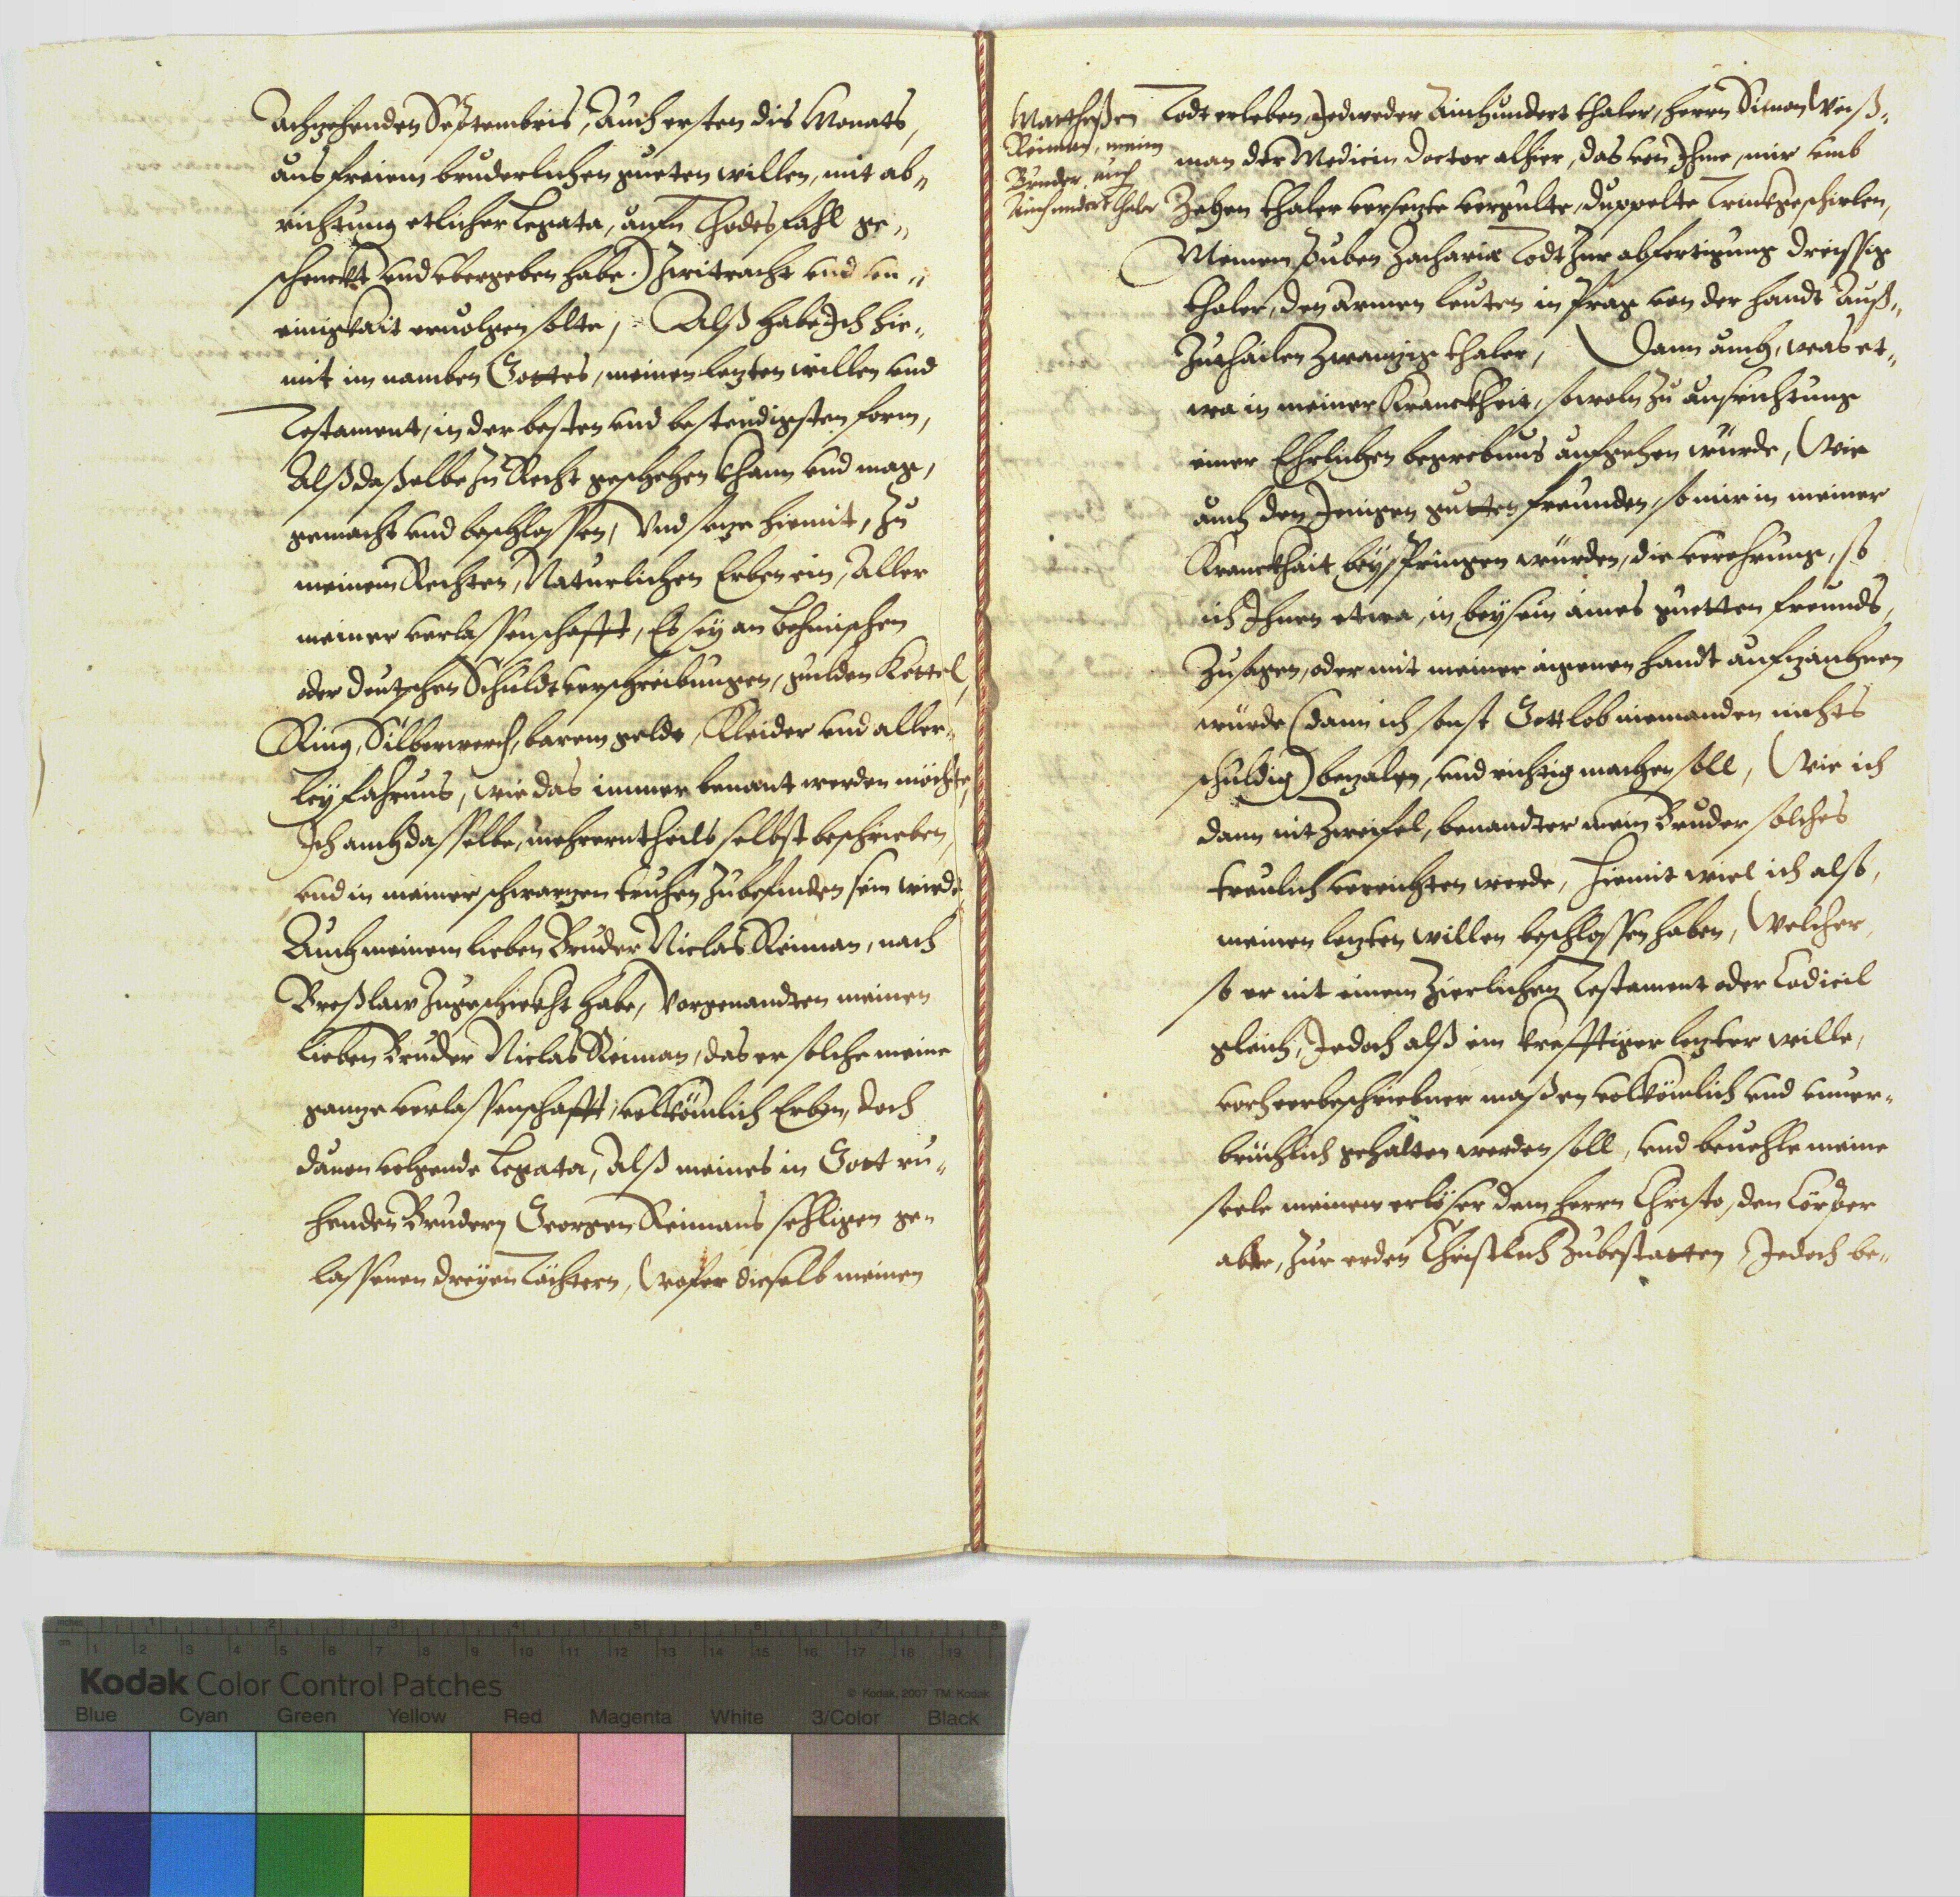 Achzehenden Septembris, Auch ersten dis Monats,
aus freiem bruderlichen gueten willen, mit ab„
richtung etlicher Legata, aufn Thodesfahl ge„
schenckt und ubergeben habe.) Zwitracht und un„
einigkait ervolgen solte, Alß habe Ich hie„
mit im namben Gottes, meinen lezten willen und
Testament, in der besten und bestendigsten form,
Alß daßelbe zu Recht geschehen khann und mag,
gemacht und beschlossen, Und seze hiemit, zu
meinem Rechten, Naturlichen Erben ein, Aller
meiner verlassenschafft, Es sey an Behmischen
oder deutschen Schuldtverschreibungen, gulden Kettel,
Ring, Silberwerch, barem geldt, Kleider und aller„
ley fahrnus, wie das immer benant werden möchte,
Ich auch dasselbe, mehrerntheils selbst beschrieben,
und in meiner schwarzen truhen zubefinden sein wirdt
Auch meinem lieben Bruder Niclas Reiman, nach
Breßlaw zugeschickht habe, Vorgenandten meinen
lieben Bruder Niclas Reiman, das er solche meine
ganze verlassenschafft, volkömlich Erben, doch
davon volgende Legata, Alß meines in Gott ru„
henden Brudern Georgen Reimans sehligen ge„
lassenen dreyen Töchtern, (wofer dieselb meinen
Mattheßen
Reiman, meim
Bruder, auch
Ainhundert thaler
Todt erleben, Jedweder Ainhundert thaler, Herrn Simon Weiß„
man der Medicin Doctor alhier, das von Ihme, mir umb
Zehen thaler versezte vergulte, duppelte Trinkgeschirlen,
Meinem Buben Zachariæ Todt zur abfertigung dreissig
thaler, den armen leuten in Prag von der handt Auß„
zuthailen zwanzig thaler, Dann auch, was et„
wa in meiner Kranckheit, sowoln zu ausrichtung
einer Ehrlichen begrebnus aufgehen würde, Wie
auch den Jenigen gutten freunden, so mir in meiner
Kranckhait beyspringen würden, die verehrung, so
ich Ihnen etwa, in beysein aines guetten freunds,
zusagen, oder mit meiner aigenen handt aufzaichnen
würde (dann ich sonst Gott lob niemanden nichts
schuldig) bezalen, und richtig machen soll, Wie ich
dann nit zweifel, benandter mein Bruder solches
treulich verrichten werde, Hiemit wiel ich also,
meinen lezten willen beschlossen haben, Welcher,
so er nit einem Zierlichen Testament oder Codicil
gleich, Jedoch alß ein krefftiger lezter wille,
vorhero beschriebner maßen volkömlich und unver„
brüchlich gehalten werden soll, und bevehle meine
seele meinem erlöser dem herrn Christo, den Cörper
aber, zur erden Christlich zubestatten Jedoch be„
Kodak Color Control Patches
© Kodak, 2007 TM: Kodak
Blue Cyan Green Yellow Red Magenta White 3/Color Black